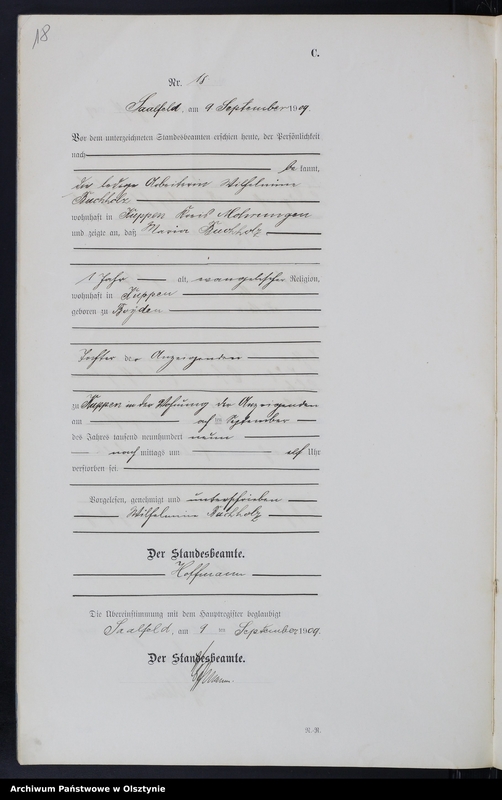 18
C.
Nr. 18
Saalfeld, am 9 September 1909.
Vor dem unterzeichneten Standesbeamten erschien heute, der Persönlichkeit
nach
be kannt,
die ledige Arbeiterin Wilhelmine
Buchholz
wohnhaft in Kuppen Kreis Mohrungen
und zeigte an, daß Maria Buchholz
1 Jahr alt, evangelischer Religion,
wohnhaft in Kuppen
geboren zu Boyden
Tochter der Anzeigenden
zu Kuppen in der Wohnung der Anzeigenden
am acht ten September
des Jahres tausend neunhundert neun
nach mittags um elf Uhr
verstorben sei.
Vorgelesen, genehmigt und unterschrieben
Wilhelmine Buchholz
Der Standesbeamte.
Hoffmann
Die Übereinstimmung mit dem Hauptregister beglaubigt
Saalfeld, am 9 ten September 1909.
Der Standesbeamte.
Archiwum Państwowe w Olsztynie